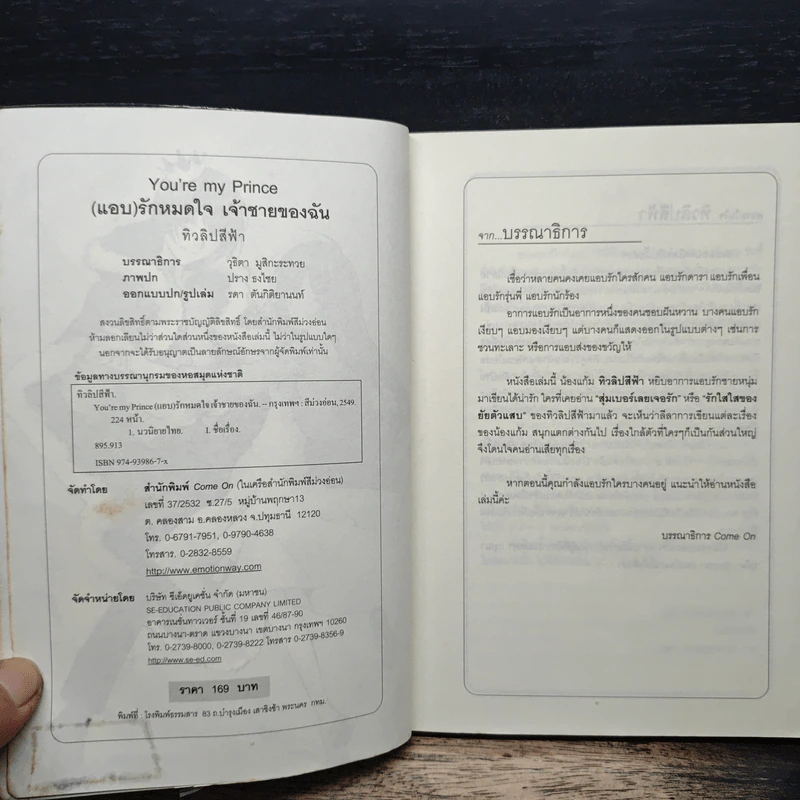 You're my Prince
(แอบ)รักหมดใจ เจ้าชายของฉัน
ทิวลิปสีฟ้า
บรรณาธิการ วุธิตา มูสิกะระทวย
ภาพปก ปราง ธงไชย
ออกแบบปก/รูปเล่ม รดา ตันกิติยานนท์
สงวนลิขสิทธิ์ตามพระราชบัญญัติลิขสิทธิ์ โดยสำนักพิมพ์สีม่วงอ่อน
ห้ามลอกเลียนไม่ว่าส่วนใดส่วนหนึ่งของหนังสือเล่มนี้ ไม่ว่าในรูปแบบใดๆ
นอกจากจะได้รับอนุญาตเป็นลายลักษณ์อักษรจากผู้จัดพิมพ์เท่านั้น
ข้อมูลทางบรรณานุกรมของหอสมุดแห่งชาติ
ทิวลิปสีฟ้า.
You're my Prince (แอบ)รักหมดใจ เจ้าชายของฉัน. -- กรุงเทพฯ : สีม่วงอ่อน, 2549.
224 หน้า.
1. นวนิยายไทย. I. ชื่อเรื่อง.
895.913
ISBN 974-93986-7-x
จัดทำโดย สำนักพิมพ์ Come On (ในเครือสำนักพิมพ์สีม่วงอ่อน)
เลขที่ 37/2532 ซ.27/5 หมู่บ้านพฤกษา13
ต. คลองสาม อ.คลองหลวง จ.ปทุมธานี 12120
โทร. 0-6791-7951, 0-9790-4638
โทรสาร. 0-2832-8559
http://www.emotionway.com
จัดจำหน่ายโดย บริษัท ซีเอ็ดยูเคชั่น จำกัด (มหาชน)
SE-EDUCATION PUBLIC COMPANY LIMITED
อาคารเนชั่นทาวเวอร์ ชั้นที่ 19 เลขที่ 46/87-90
ถนนบางนา-ตราด แขวงบางนา เขตบางนา กรุงเทพฯ 10260
โทร. 0-2739-8000, 0-2739-8222 โทรสาร 0-2739-8356-9
http://www.se-ed.com
ราคา 169 บาท
พิมพ์ที่ : โรงพิมพ์ธรรมสาร 83 ถ.บำรุงเมือง เสาชิงช้า พระนคร กทม.
จาก...บรรณาธิการ
เชื่อว่าหลายคนคงเคยแอบรักใครสักคน แอบรักดารา แอบรักเพื่อน
แอบรักรุ่นพี่ แอบรักนักร้อง
อาการแอบรักเป็นอาการหนึ่งของคนชอบฝันหวาน บางคนแอบรัก
เงียบๆ แอบมองเงียบๆ แต่บางคนก็แสดงออกในรูปแบบต่างๆ เช่นการ
ชวนทะเลาะ หรือการแอบส่งของขวัญให้
หนังสือเล่มนี้ น้องแก้ม ทิวลิปสีฟ้า หยิบอาการแอบรักชายหนุ่ม
มาเขียนได้น่ารัก ใครที่เคยอ่าน "สุ่มเบอร์เลยเจอรัก" หรือ "รักใสใสของ
ยัยตัวแสบ" ของทิวลิปสีฟ้ามาแล้ว จะเห็นว่าลีลาการเขียนแต่ละเรื่อง
ของน้องแก้ม สนุกแตกต่างกันไป เรื่องใกล้ตัวที่ใครๆก็เป็นกันส่วนใหญ่
จึงโดนใจคนอ่านเสียทุกเรื่อง
หากตอนนี้คุณกำลังแอบรักใครบางคนอยู่ แนะนำให้อ่านหนังสือ
เล่มนี้ค่ะ
บรรณาธิการ Come On